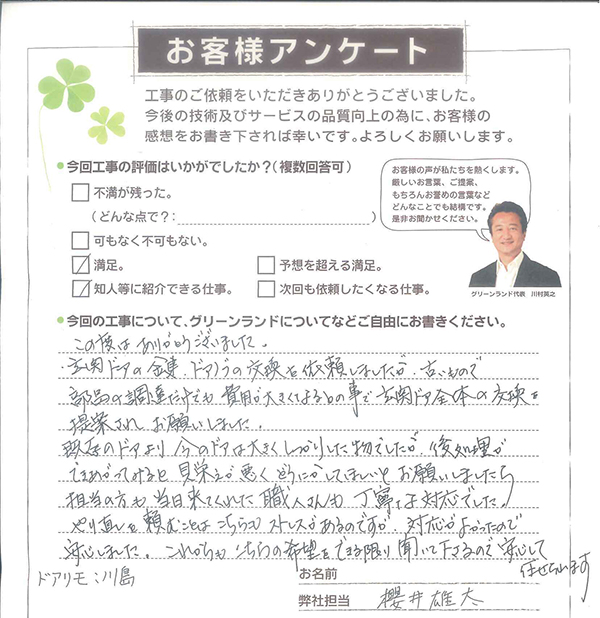 お客様アンケート
工事のご依頼をいただきありがとうございました。
今後の技術及びサービスの品質向上の為に、お客様の
感想をお書き下されば幸いです。よろしくお願いします。
今回工事の評価はいかがでしたか?(複数回答可)
不満が残った。
(どんな点で?:                    )
可もなく不可もない。
満足。
予想を超える満足。
知人等に紹介できる仕事。
次回も依頼したくなる仕事。
お客様の声が私たちを熱くします。
厳しいお言葉、ご提案、
もちろんお誉めの言葉など
どんなことでも結構です。
是非お聞かせください。
グリーンランド代表 川村英之
今回の工事について、グリーンランドについてなどご自由にお書きください。
この度はありがとうございました。
玄関ドアの鍵・ドアノブの交換を依頼しましたが、古いもので
部品の調達だけでも費用が大きくなるとの事で玄関ドア全体の交換を
提案され、お願いしました。
既存のドアより今のドアは大きくしっかりした物でしたが、後処理が
できあがってみると見栄えが悪くどうにかしてほしいとお願いしましたら
担当の方も当日来てくれた職人さんも丁寧な対応でした。
やり直しを頼むことはこちらもストレスがあるのですが、対応がよかったので
安心しました。これからもこちらの希望をできる限り聞いて下さるので安心して
任せられます
ドアリモ:川島
お名前
弊社担当 櫻井雄太